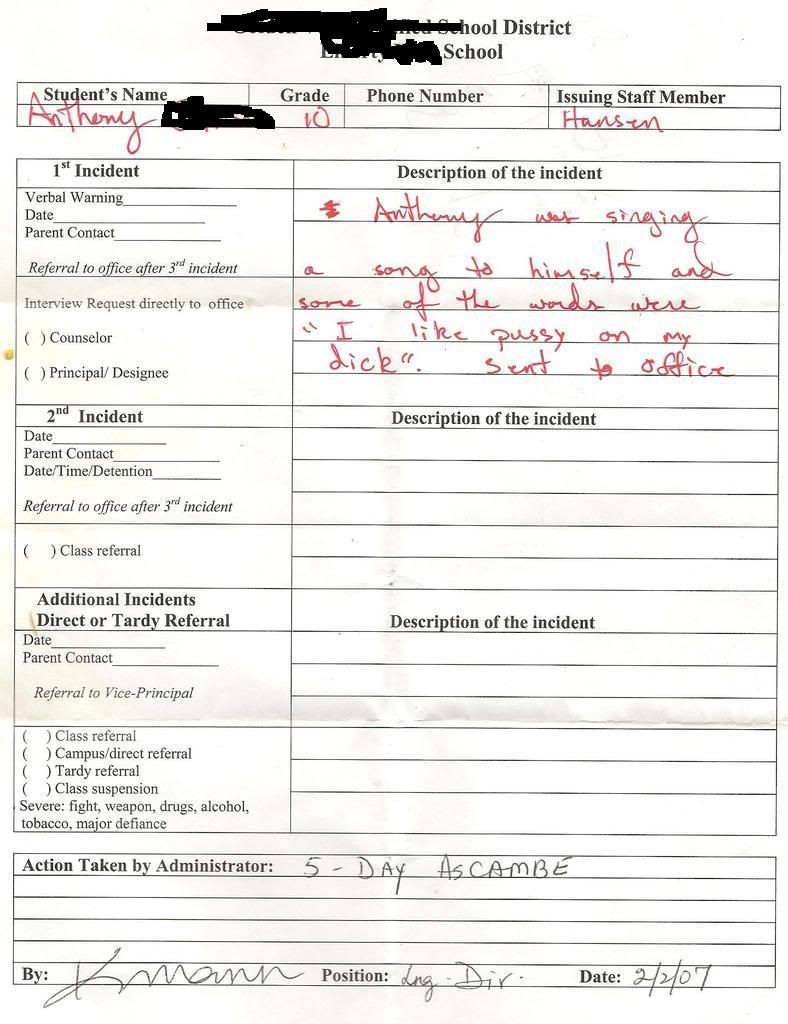 School District
School
Student's Name Grade Phone Number Issuing Staff Member
Anthony 10 Hansen
1st Incident Description of the incident
Verbal Warning
Date
Parent Contact
Anthony was singing
Referral to office after 3rd incident
a song to himself and
Interview Request directly to office
some of the words were
( ) Counselor
"I like pussy on my
( ) Principal/ Designee
dick". Sent to office
2nd Incident Description of the incident
Date
Parent Contact
Date/Time/Detention
Referral to office after 3rd incident
( ) Class referral
Additional Incidents
Direct or Tardy Referral Description of the incident
Date
Parent Contact
Referral to Vice-Principal
( ) Class referral
( ) Campus/direct referral
( ) Tardy referral
( ) Class suspension
Severe: fight, weapon, drugs, alcohol,
tobacco, major defiance
Action Taken by Administrator: 5 - DAY ASCAMBE
By: Position: Dir. Date: 2/2/07